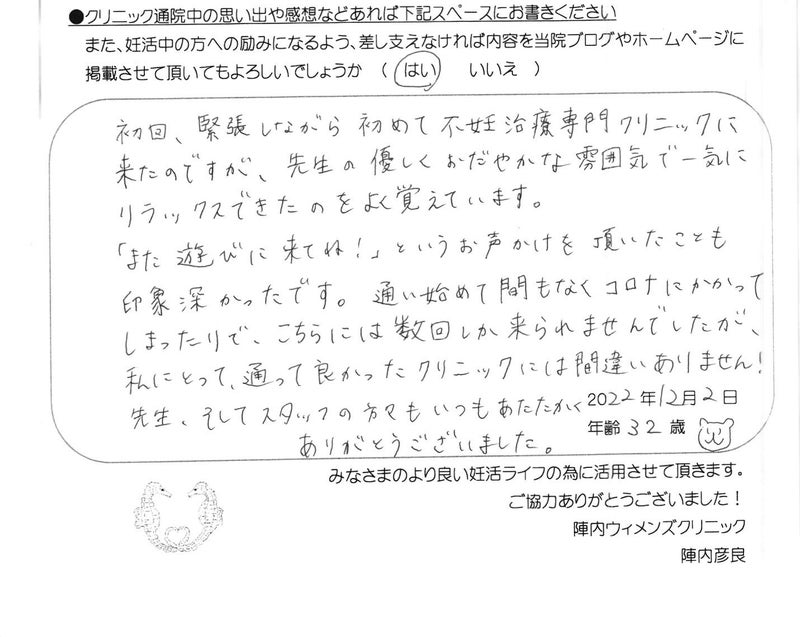 ●クリニック通院中の思い出や感想などあれば下記スペースにお書きください
また、妊活中の方への励みになるよう、差し支えなければ内容を当院ブログやホームページに
掲載させて頂いてもよろしいでしょうか （ はい いいえ ）
初回、緊張しながら初めて不妊治療専門クリニックに
来たのですが、先生の優しくおだやかな雰囲気で一気に
リラックスできたのをよく覚えています。
「また遊びに来てね！」というお声かけを頂いたことも
印象深かったです。通い始めて間もなくコロナにかかって
しまったりで、こちらには数回しか来られませんでしたが、
私にとって、通って良かったクリニックには間違いありません！
先生、そしてスタッフの方々もいつもあたたかく
ありがとうございました。
2022年12月2日
年齢32歳
みなさまのより良い妊活ライフの為に活用させて頂きます。
ご協力ありがとうございました！
陣内ウィメンズクリニック
陣内彦良